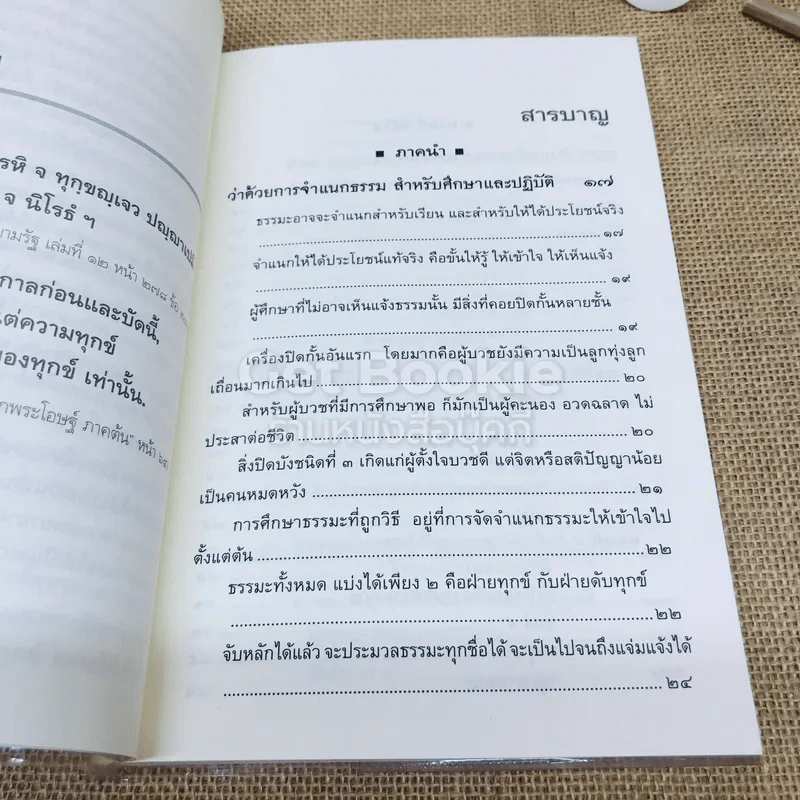 รหิ จ ทุกฺขญฺเจว ปญฺญาเปมิ
จ นิโรธํ ฯ
ยามรัฐ เล่มที่ ๑๒ หน้า ๒๗๘ ข้อ
กาลก่อนและบัดนี้,
แต่ความทุกข์
ของทุกข์ เท่านั้น.
กพระโอษฐ์ ภาคต้น" หน้า
สารบาญ
■ ภาคนำ ■
ว่าด้วยการจำแนกธรรม สำหรับศึกษาและปฏิบัติ ๑๗
ธรรมะอาจจะจำแนกสำหรับเรียน และสำหรับให้ได้ประโยชน์จริง
............................................................ ๑๗
จำแนกให้ได้ประโยชน์แท้จริง คือขั้นให้รู้ ให้เข้าใจ ให้เห็นแจ้ง
............................................................ ๑๙
ผู้ศึกษาที่ไม่อาจเห็นแจ้งธรรมนั้น มีสิ่งที่คอยปิดกั้นหลายชั้น
............................................................ ๑๙
เครื่องปิดกั้นอันแรก โดยมากคือผู้บวชยังมีความเป็นลูกทุ่งลูก
เถื่อนมากเกินไป ............................................................ ๒๐
สำหรับผู้บวชที่มีการศึกษาพอ ก็มักเป็นผู้คะนอง อวดฉลาด ไม่
ประสาต่อชีวิต ............................................................ ๒๐
สิ่งปิดบังชนิดที่ ๓ เกิดแก่ผู้ตั้งใจบวชดี แต่จิตหรือสติปัญญาน้อย
เป็นคนหมดหวัง ............................................................ ๒๑
การศึกษาธรรมะที่ถูกวิธี อยู่ที่การจัดจำแนกธรรมะให้เข้าใจไป
ตั้งแต่ต้น ............................................................ ๒๒
ธรรมะทั้งหมด แบ่งได้เพียง ๒ คือฝ่ายทุกข์ กับฝ่ายดับทุกข์
............................................................ ๒๒
จับหลักได้แล้ว จะประมวลธรรมะทุกชื่อได้ จะเป็นไปจนถึงแจ่มแจ้งได้
............................................................ ๒๔
Get Bookie